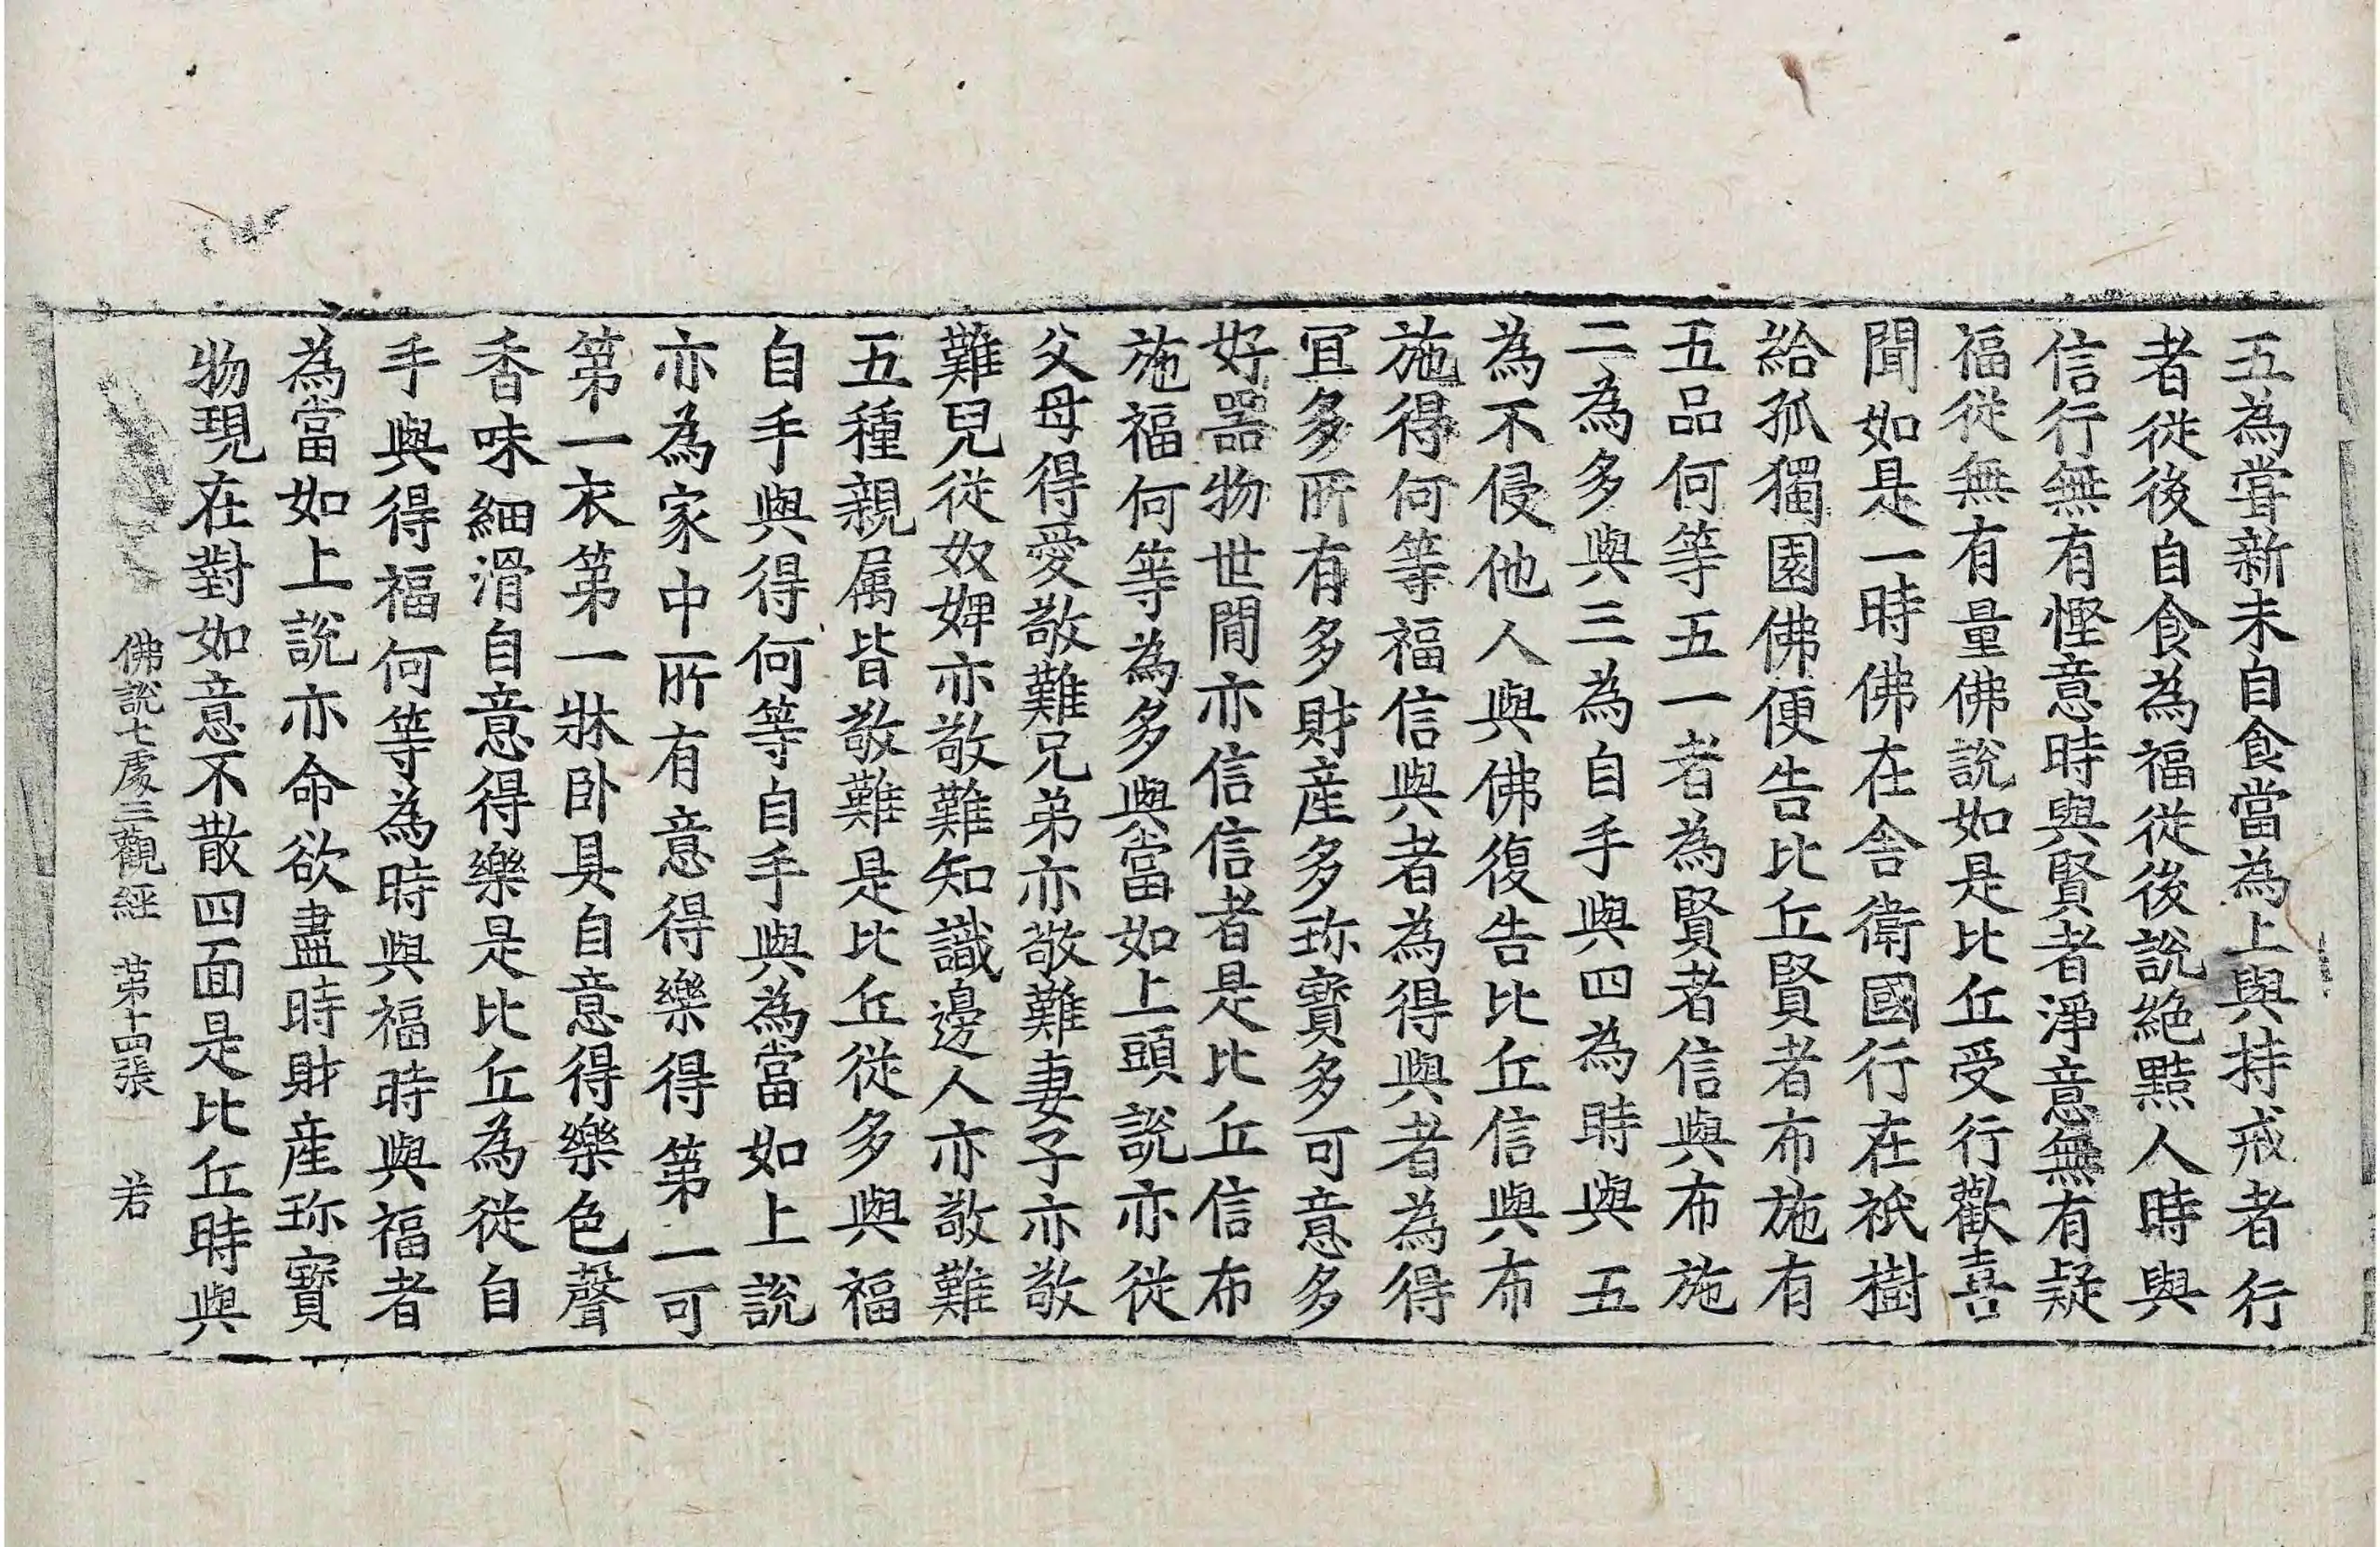 五為甞新未自食當為上與持戒者行
者從後自食為福從後說絶黠人時與
信行無有慳意時與賢者淨意無有疑
福從無有量佛說如是比丘受行歡喜
聞如是一時佛在舍衛國行在祇樹
給孤獨園佛便告比丘賢者布施有
五品何等五一者為賢者信與布施
二為多與三為自手與四為時與五
為不侵他人與佛復告比丘信與布
施得何等福信與者為得與者為得
冝多所有多財産多珎寶多可意多
好器物世間亦信信者是比丘信布
施福何等為多與當如上頭說亦從
父母得愛敬難兄弟亦敬難妻子亦敬
難兒從奴婢亦敬難知識邊人亦敬難
五種親属皆敬難是比丘從多與福
自手與得何等自手與為當如上說
亦為家中所有意得樂得第一可
第一衣第一牀卧具自意得樂色聲
香味細滑自意得樂是比丘為從自
手與得福何等為時與福時與福者
為當如上說亦命欲盡時財産珎寶
物現在對如意不散四面是比丘時與
佛說七處三觀經 第十四張 若